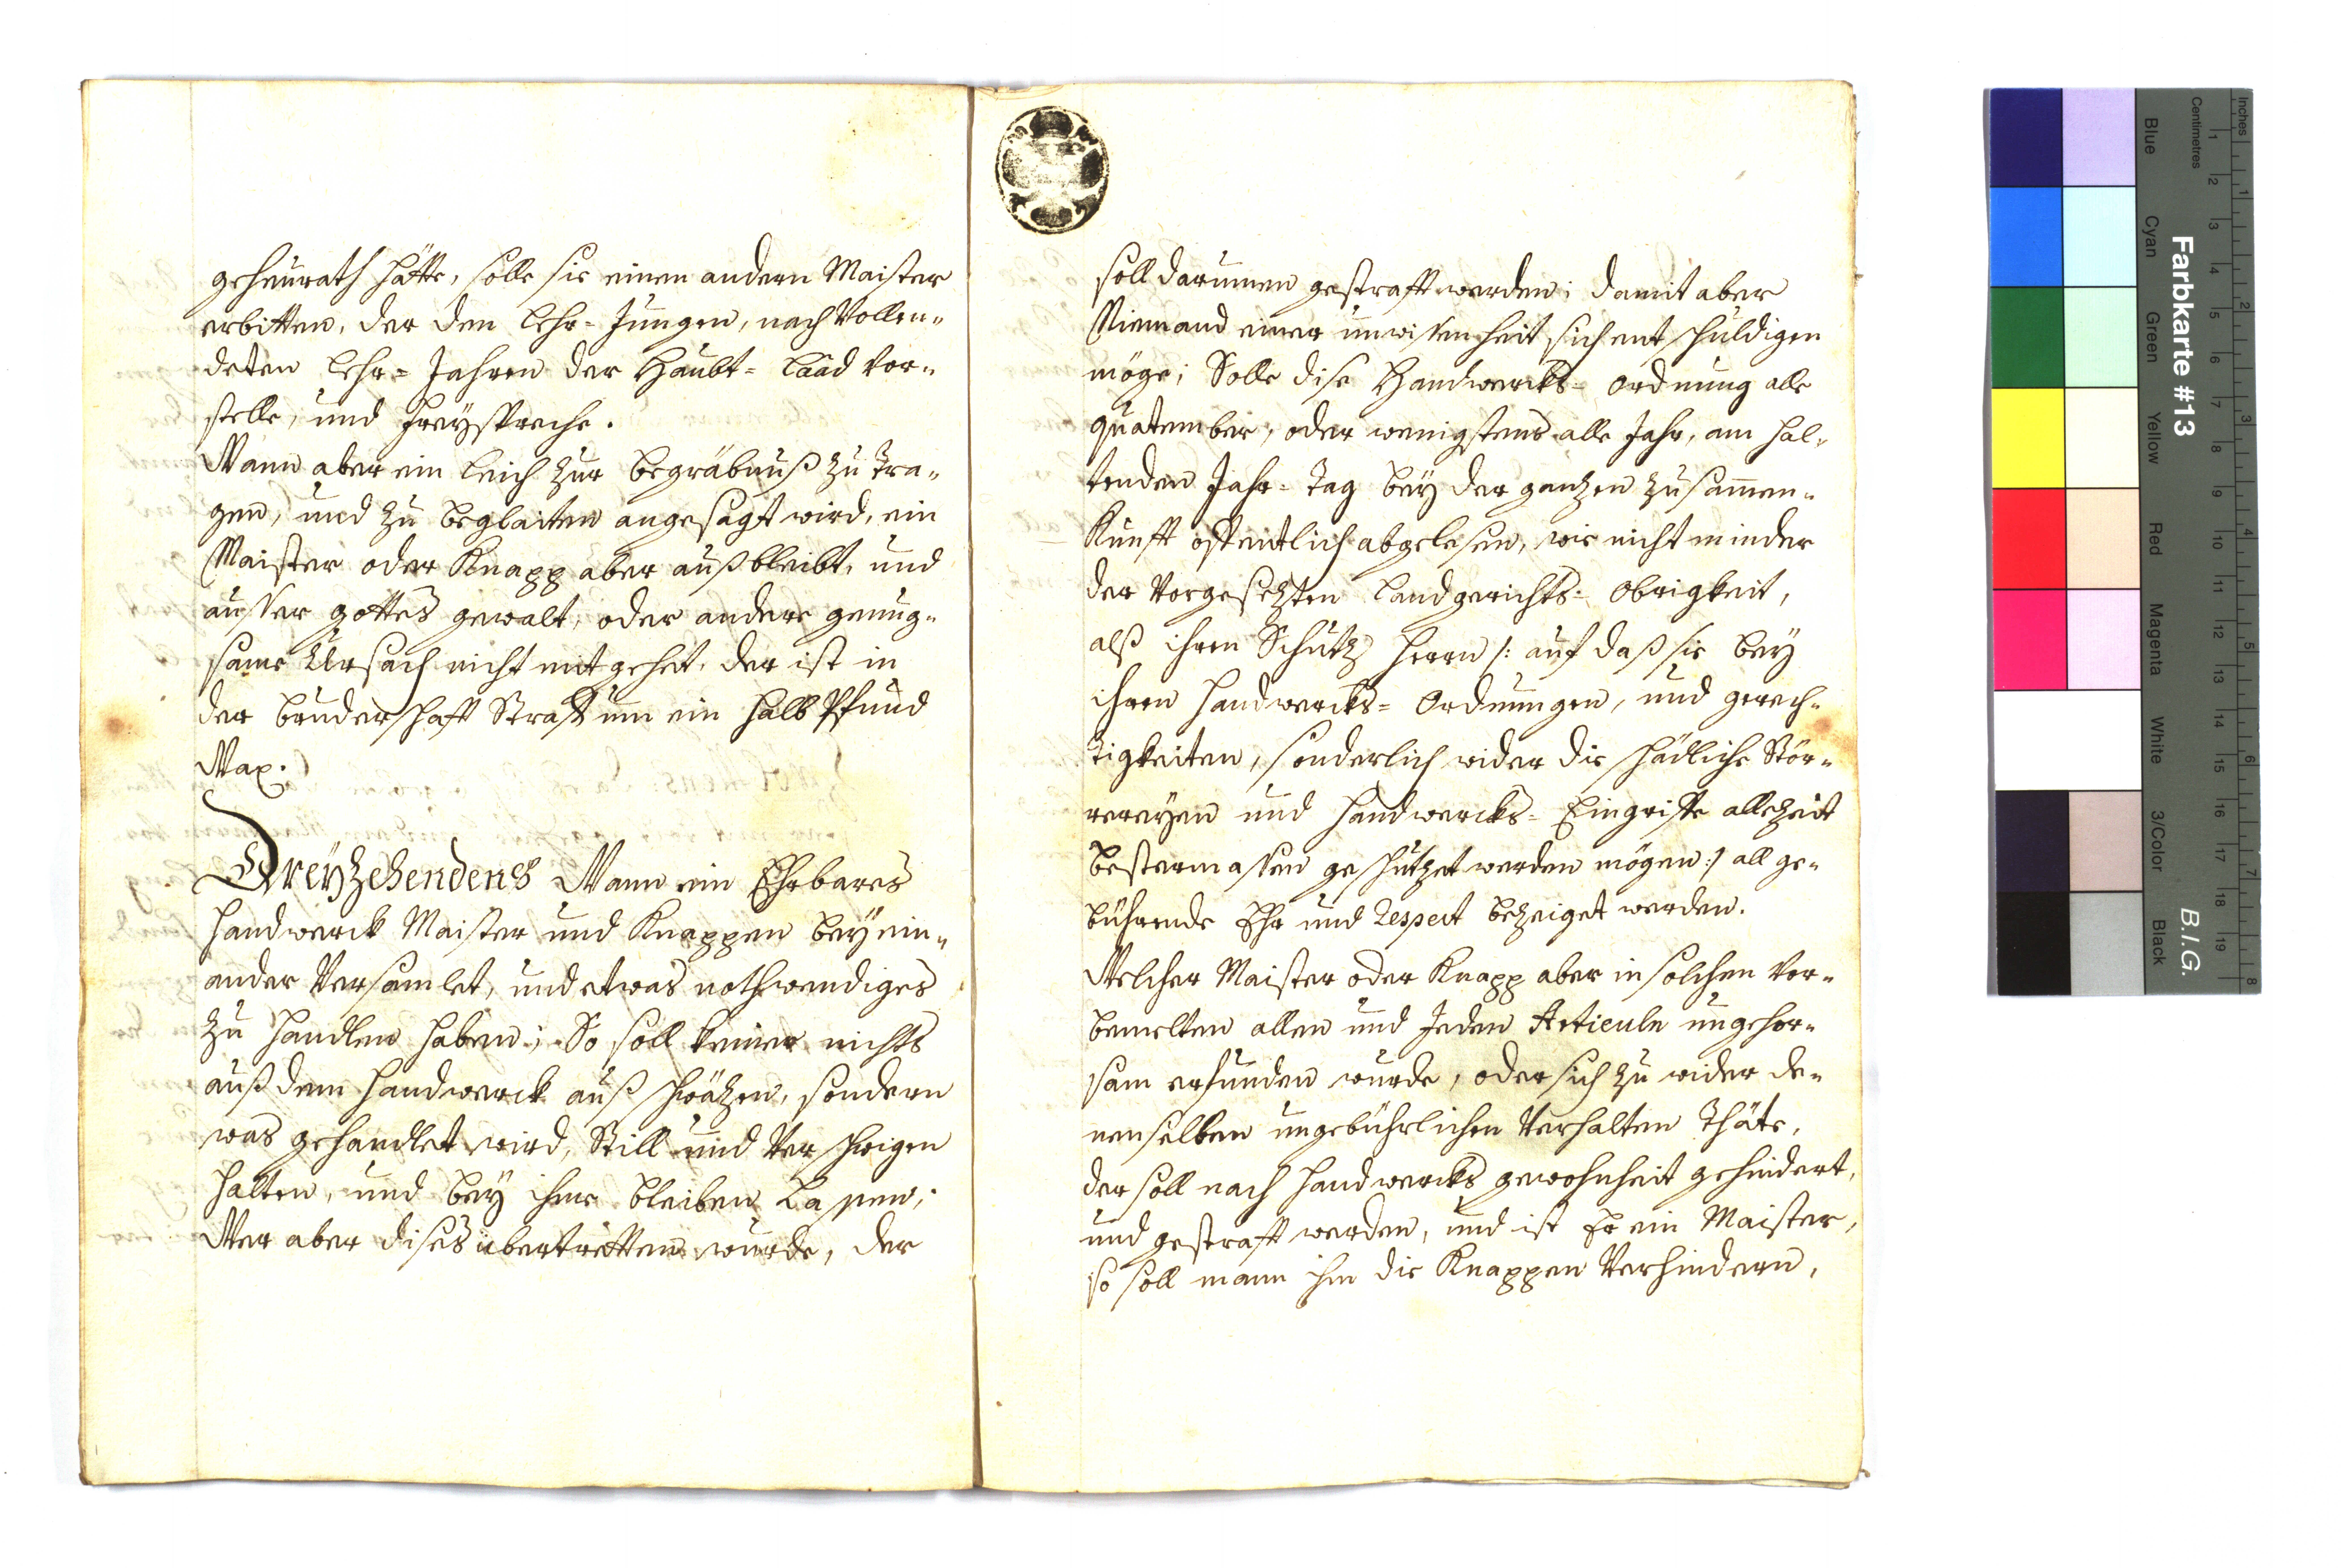 geheurath hätte, solle sie einen andern Maister
erbitten, der den Lehr= Jungen, nach Vollen„
deten Lehr= Jahren der Haubt= Laad vor„
stelle, und Freÿspreche.
Wann aber ein Leich zur begräbnuß zu tra„
gen, und zu beglaiten angesagt wird, ein
Maister oder Knapp aber außbleibt, und
ausser gottes gewalt, oder andere genug„
same Ursach nicht mit gehet, der ist in
der bruderschafft Straff um ein halb Pfund
Wax.
Dreÿzehendens Wann ein Ehrbares
Handwerck Maister und Knappen beÿ ein„
ander Versamlet, und etwas nothwendiges
zu handlen haben; So soll keiner nichts
auß dem Handwerck auß schwätzen, sondern
was gehandlet wird, Still und Verschwigen
halten, und beÿ ihme bleiben Lassen;
Wer aber dises übertretten wurde, der
soll darumen gestrafft werden; damit aber
Niemand einer unwissenheit sich entschuldigen
möge; Solle dise Handwercks= Ordnung alle
quatember, oder wenigstens alle Jahr, am hal„
tenden Jahr= Tag beÿ der gantzen zusamen„
Kunfft offentlich abgelesen, wie nicht minder
der Vorgesetzten Landgerichts= Obrigkeit,
alß ihren Schutz Herrn /: auf daß sie beÿ
ihren Handwercks= Ordnungen, und gerech„
tigkeiten, sonderlich wider die schädliche Stör„
rereÿen und Handwercks= Eingriffe allezeit
bestermassen geschützet werden mögen :/ all ge„
bührende Ehr und Respect bezeiget werden.
Welcher Maister oder Knapp aber in solchen vor„
bemelten allen und Jeden Articuln ungehor„
sam erfunden wurde, oder sich zu wider de„
nenselben ungebührlichen Verhalten thäte,
der soll nach Handwercks gewohnheit gehindert,
und gestrafft werden, und ist Er ein Maister,
so soll mann ihm die Knappen Verhindern,
Farbkarte #13
B.I.G.
Inches
Centimetres
1 2 3 4 5 6 7 8
1 2 3 4 5 6 7 8 9 10 11 12 13 14 15 16 17 18 19
Blue
Cyan
Green
Yellow
Red
Magenta
White
3/Color
Black